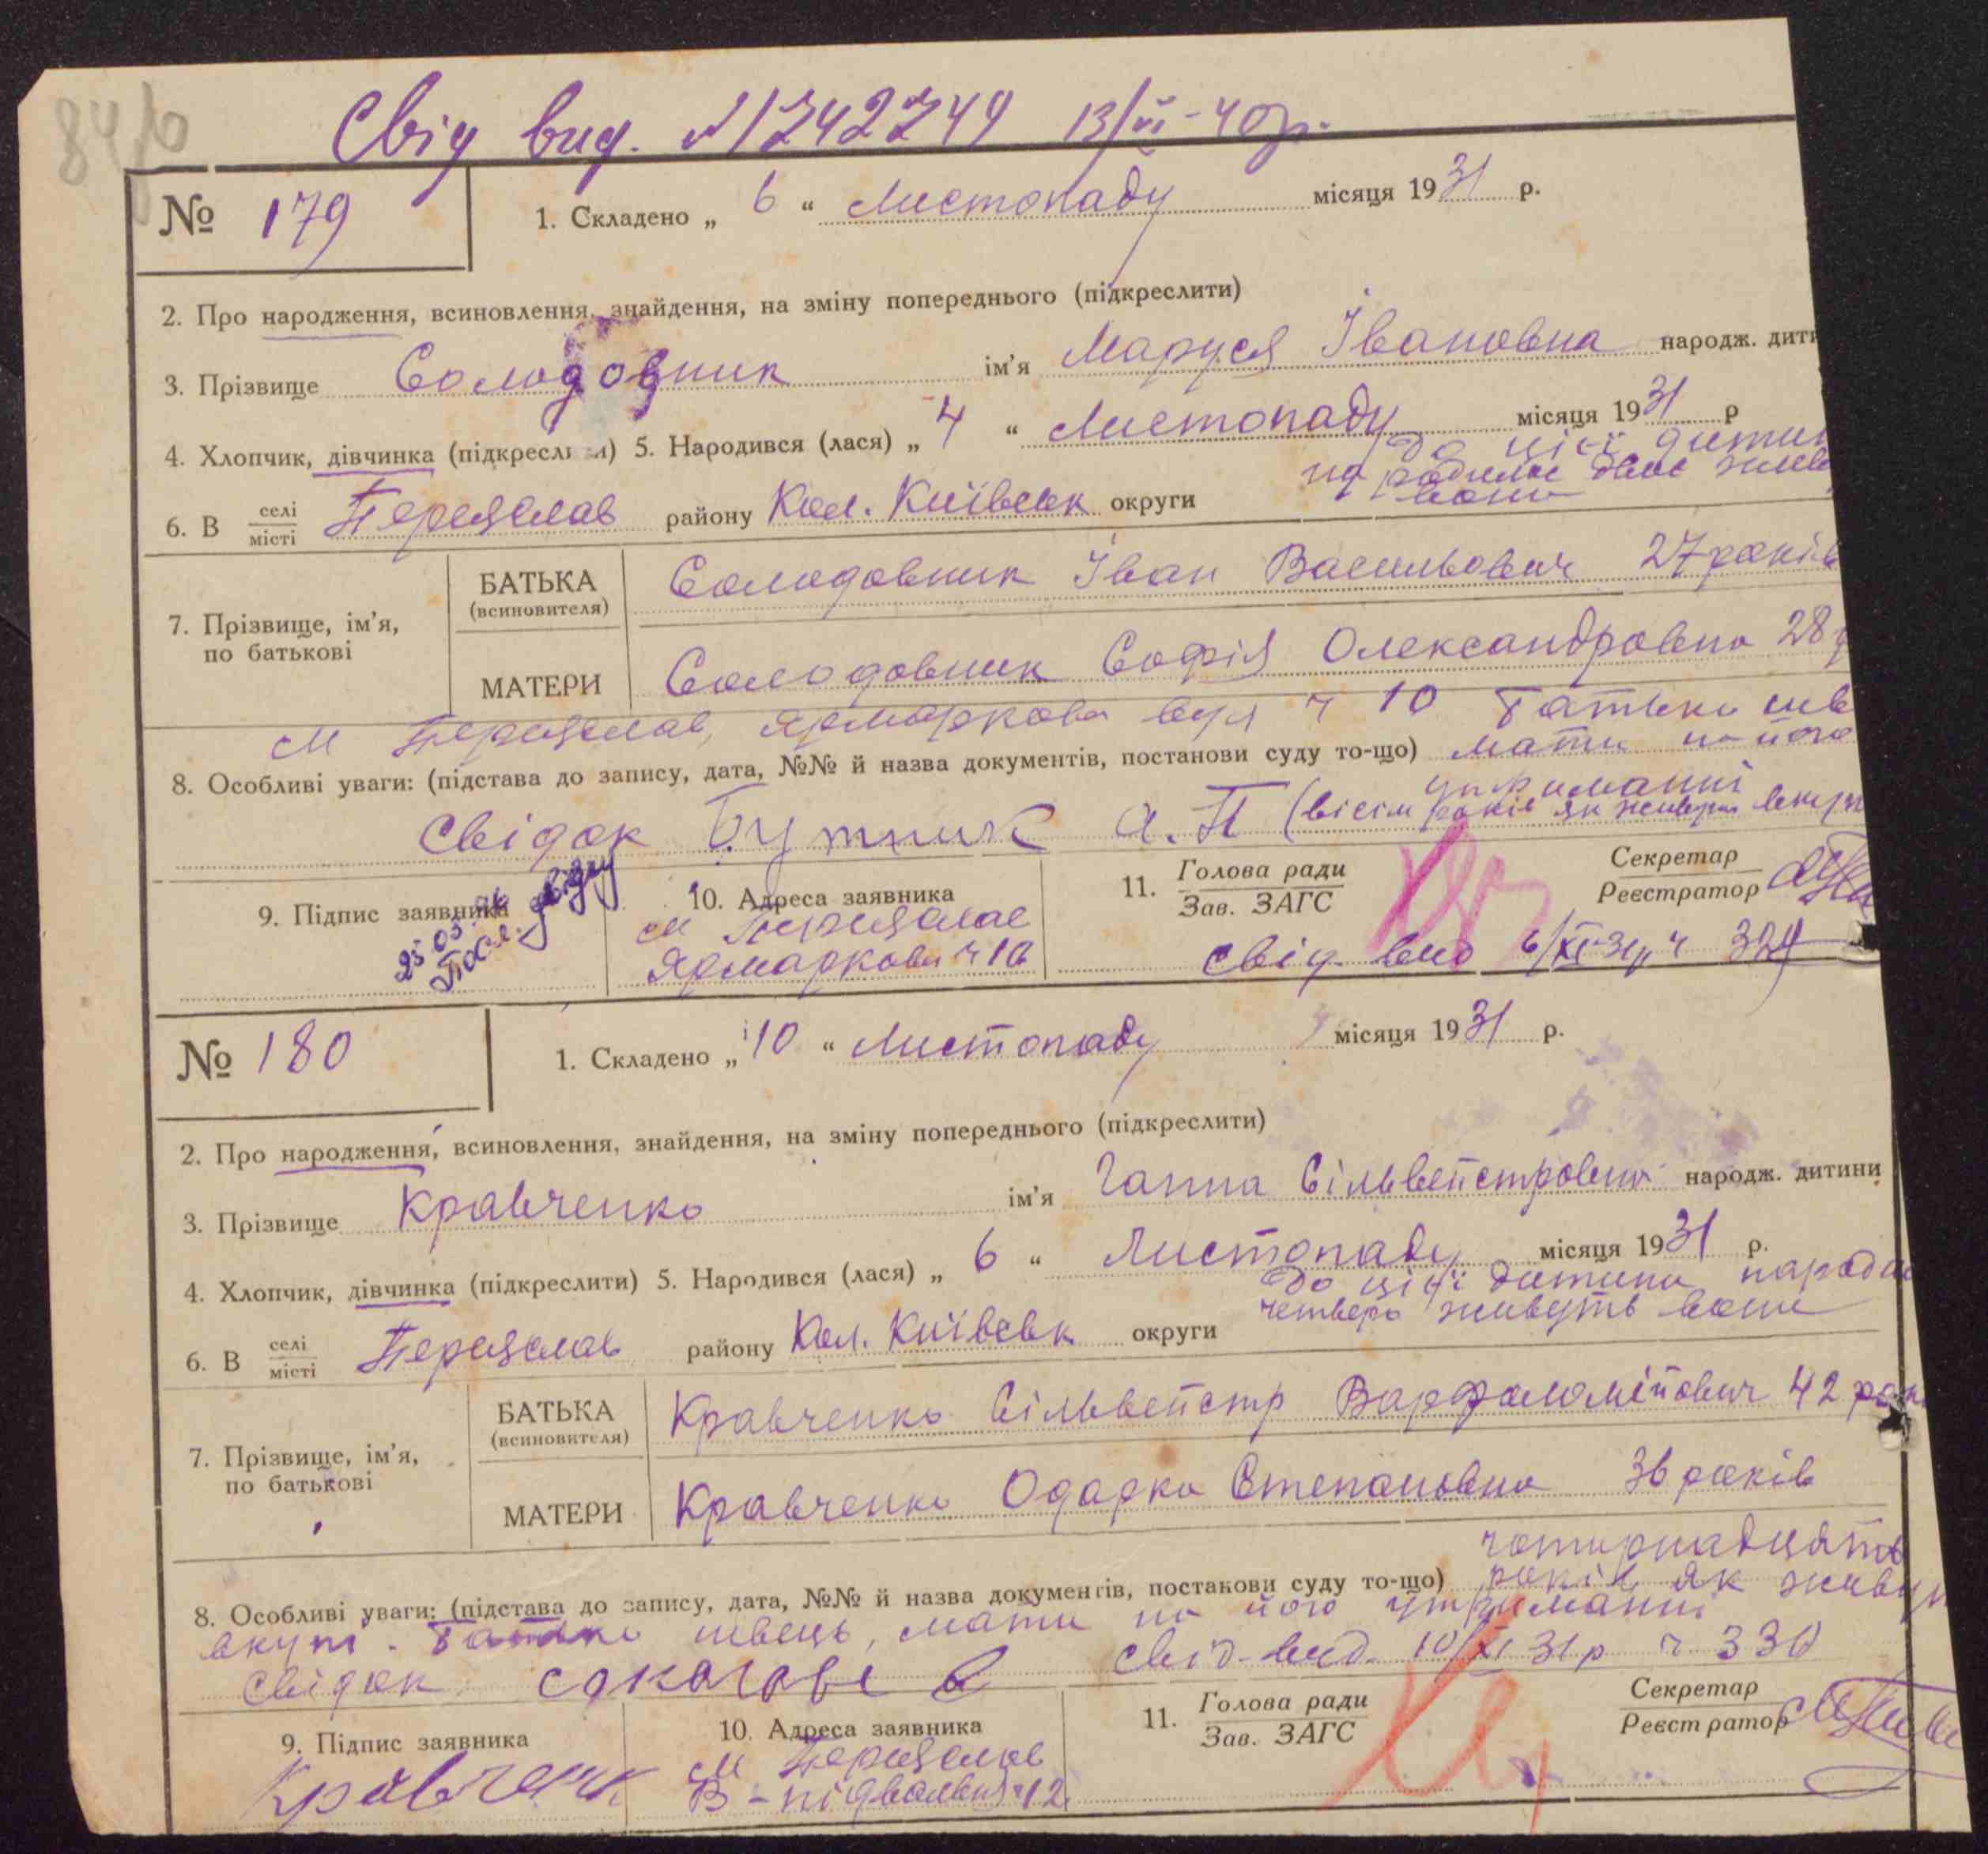 84/р
Свід вид. №1242749 13/VI-40р.
№ 179
1. Складено „ 6 “ Листопаду місяця 1931 р.
2. Про народження, всиновлення, знайдення, на зміну попереднього (підкреслити)
3. Прізвище Солодовник ім’я Маруся Івановна народж. дити
4. Хлопчик, дівчинка (підкресли и) 5. Народився (лася) „ 4 “ Листопаду місяця 1931 р
до цієї дитин
народилос двоє живе
вони
6. В селі/місті Переяслав району Кол. Київськ округи
7. Прізвище, ім’я, по батькові
БАТЬКА (всиновителя) Солодовник Іван Васильович 27 років
МАТЕРИ Солодовник Софія Олександровна 28 р
м Переяслав, Ярмаркова вул ч 10 Батько шв
8. Особливі уваги: (підстава до запису, дата, №№ й назва документів, постанови суду то-що) мати на його
утриманні
Свідок Бутник А.П (вісім років як живут вкуп
9. Підпис заявника
25.03.
10. Адреса заявника
м Переяслав
Ярмаркова ч 10
11. Голова ради/Зав. ЗАГС
Секретар/Реєстратор
свід вид 6/XI-31р ч 329
№ 180
1. Складено „ 10 “ Листопаду місяця 1931 р.
2. Про народження, всиновлення, знайдення, на зміну попереднього (підкреслити)
3. Прізвище Кравченко ім’я Ганна Сільвейстровна народж. дитини
4. Хлопчик, дівчинка (підкреслити) 5. Народився (лася) „ 6 “ Листопаду місяця 1931 р.
до цієї дитини народил
четверо живуть вони
6. В селі/місті Переяслав району Кол. Київськ округи
7. Прізвище, ім’я, по батькові
БАТЬКА (всиновителя) Кравченко Сільвейстр Варфоломійович 42 рок
МАТЕРИ Кравченко Одарка Степановна 36 років
чотирнадцять
8. Особливі уваги: (підстава до запису, дата, №№ й назва документів, постанови суду то-що) років як живут
вкупі. Батько швець, мати на його утриманні
Свідок свід-вид. 10/XI 31р ч 330
9. Підпис заявника
Кравченк
10. Адреса заявника
м Переяслав
В-підвальна ч12
11. Голова ради/Зав. ЗАГС
Секретар/Реєстратор